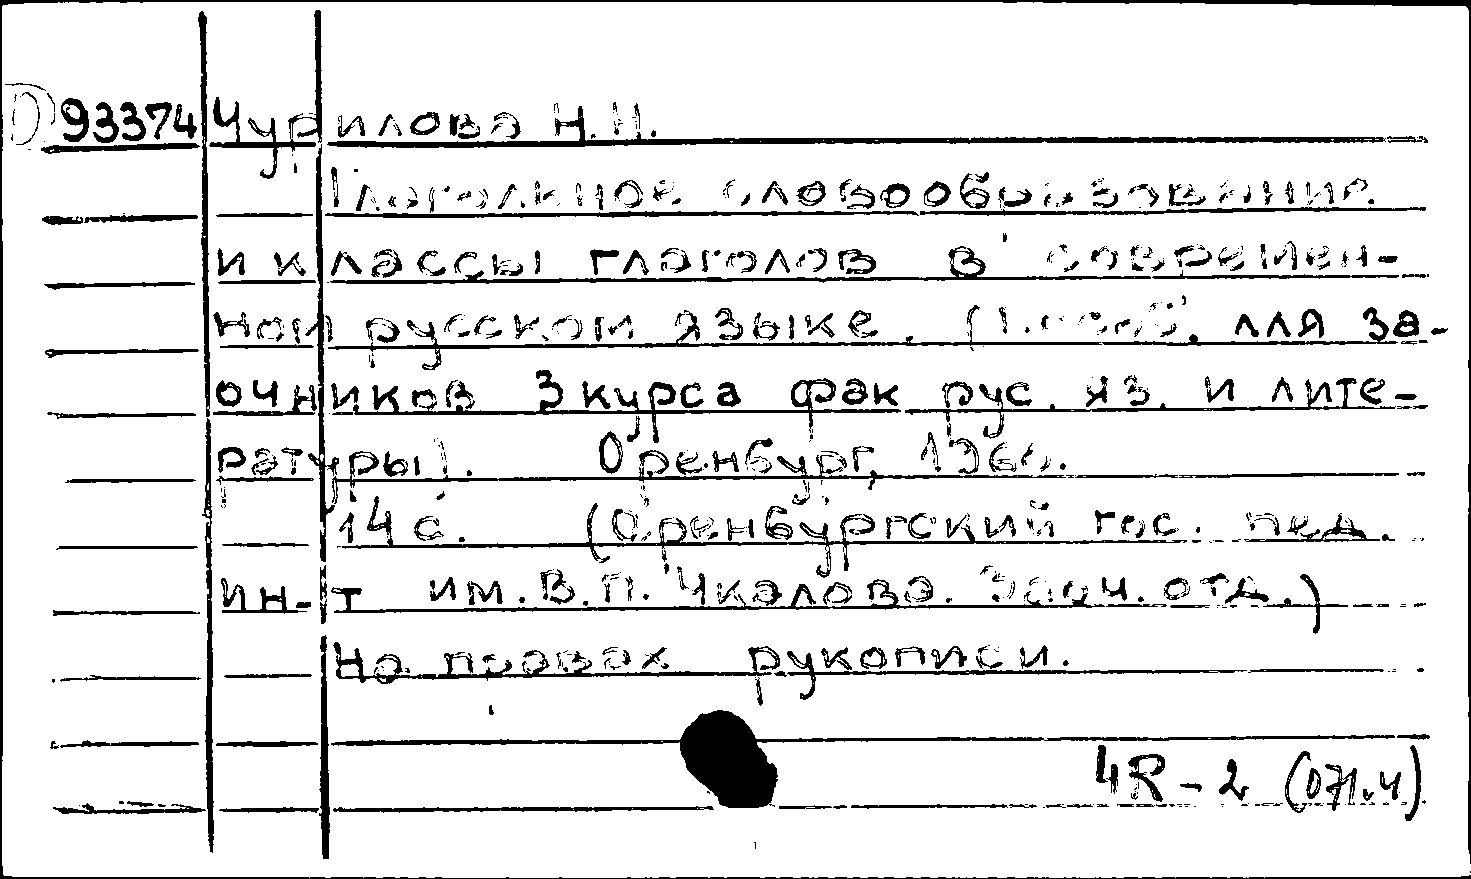 D 93374 Чурилова Н.Н.
Глагольное словообразование
и классы глаголов в современ-
ном русском языке. (Пособ. для за-
очников 3 курса фак рус. яз. и лите-
ратуры). Оренбург, 1960.
14 с. (Оренбургский гос. пед.
ин-т им. В.П. Чкалова. Заоч. отд.)
На правах рукописи.
4R-2 (071.4)